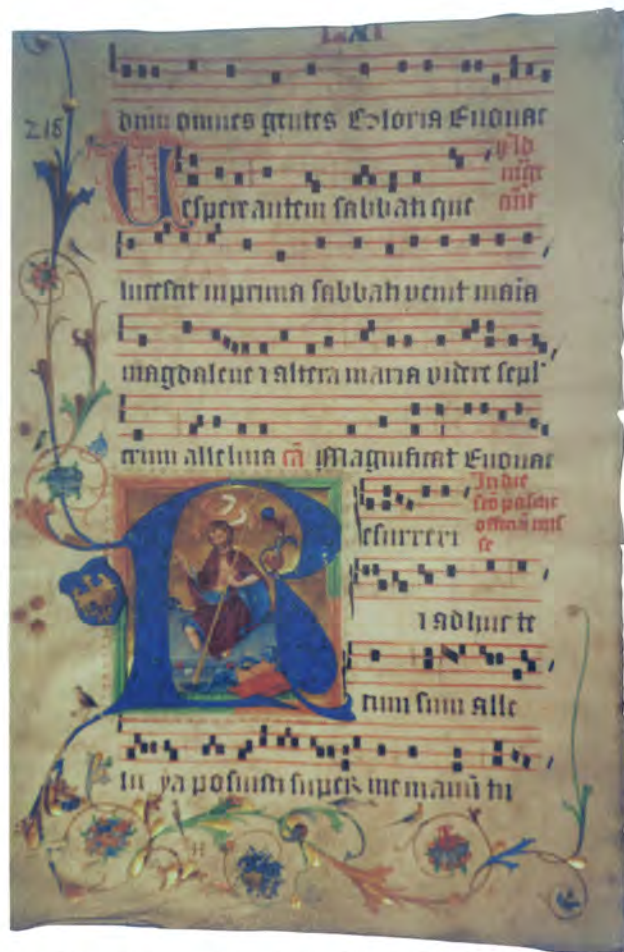 LXI
218
dnm omnes gentes Gloria Euouae
Vespere autem sabbati que
lucescit in prima sabbati venit maia
magdalene ⁊ altera maria videre sepl
crum alleluia cā Magnificat Euouae
In die
scō pasche
esurrexi
se
⁊ adhuc te
cum sum alle
lu ya posuisti super me manū tu
H